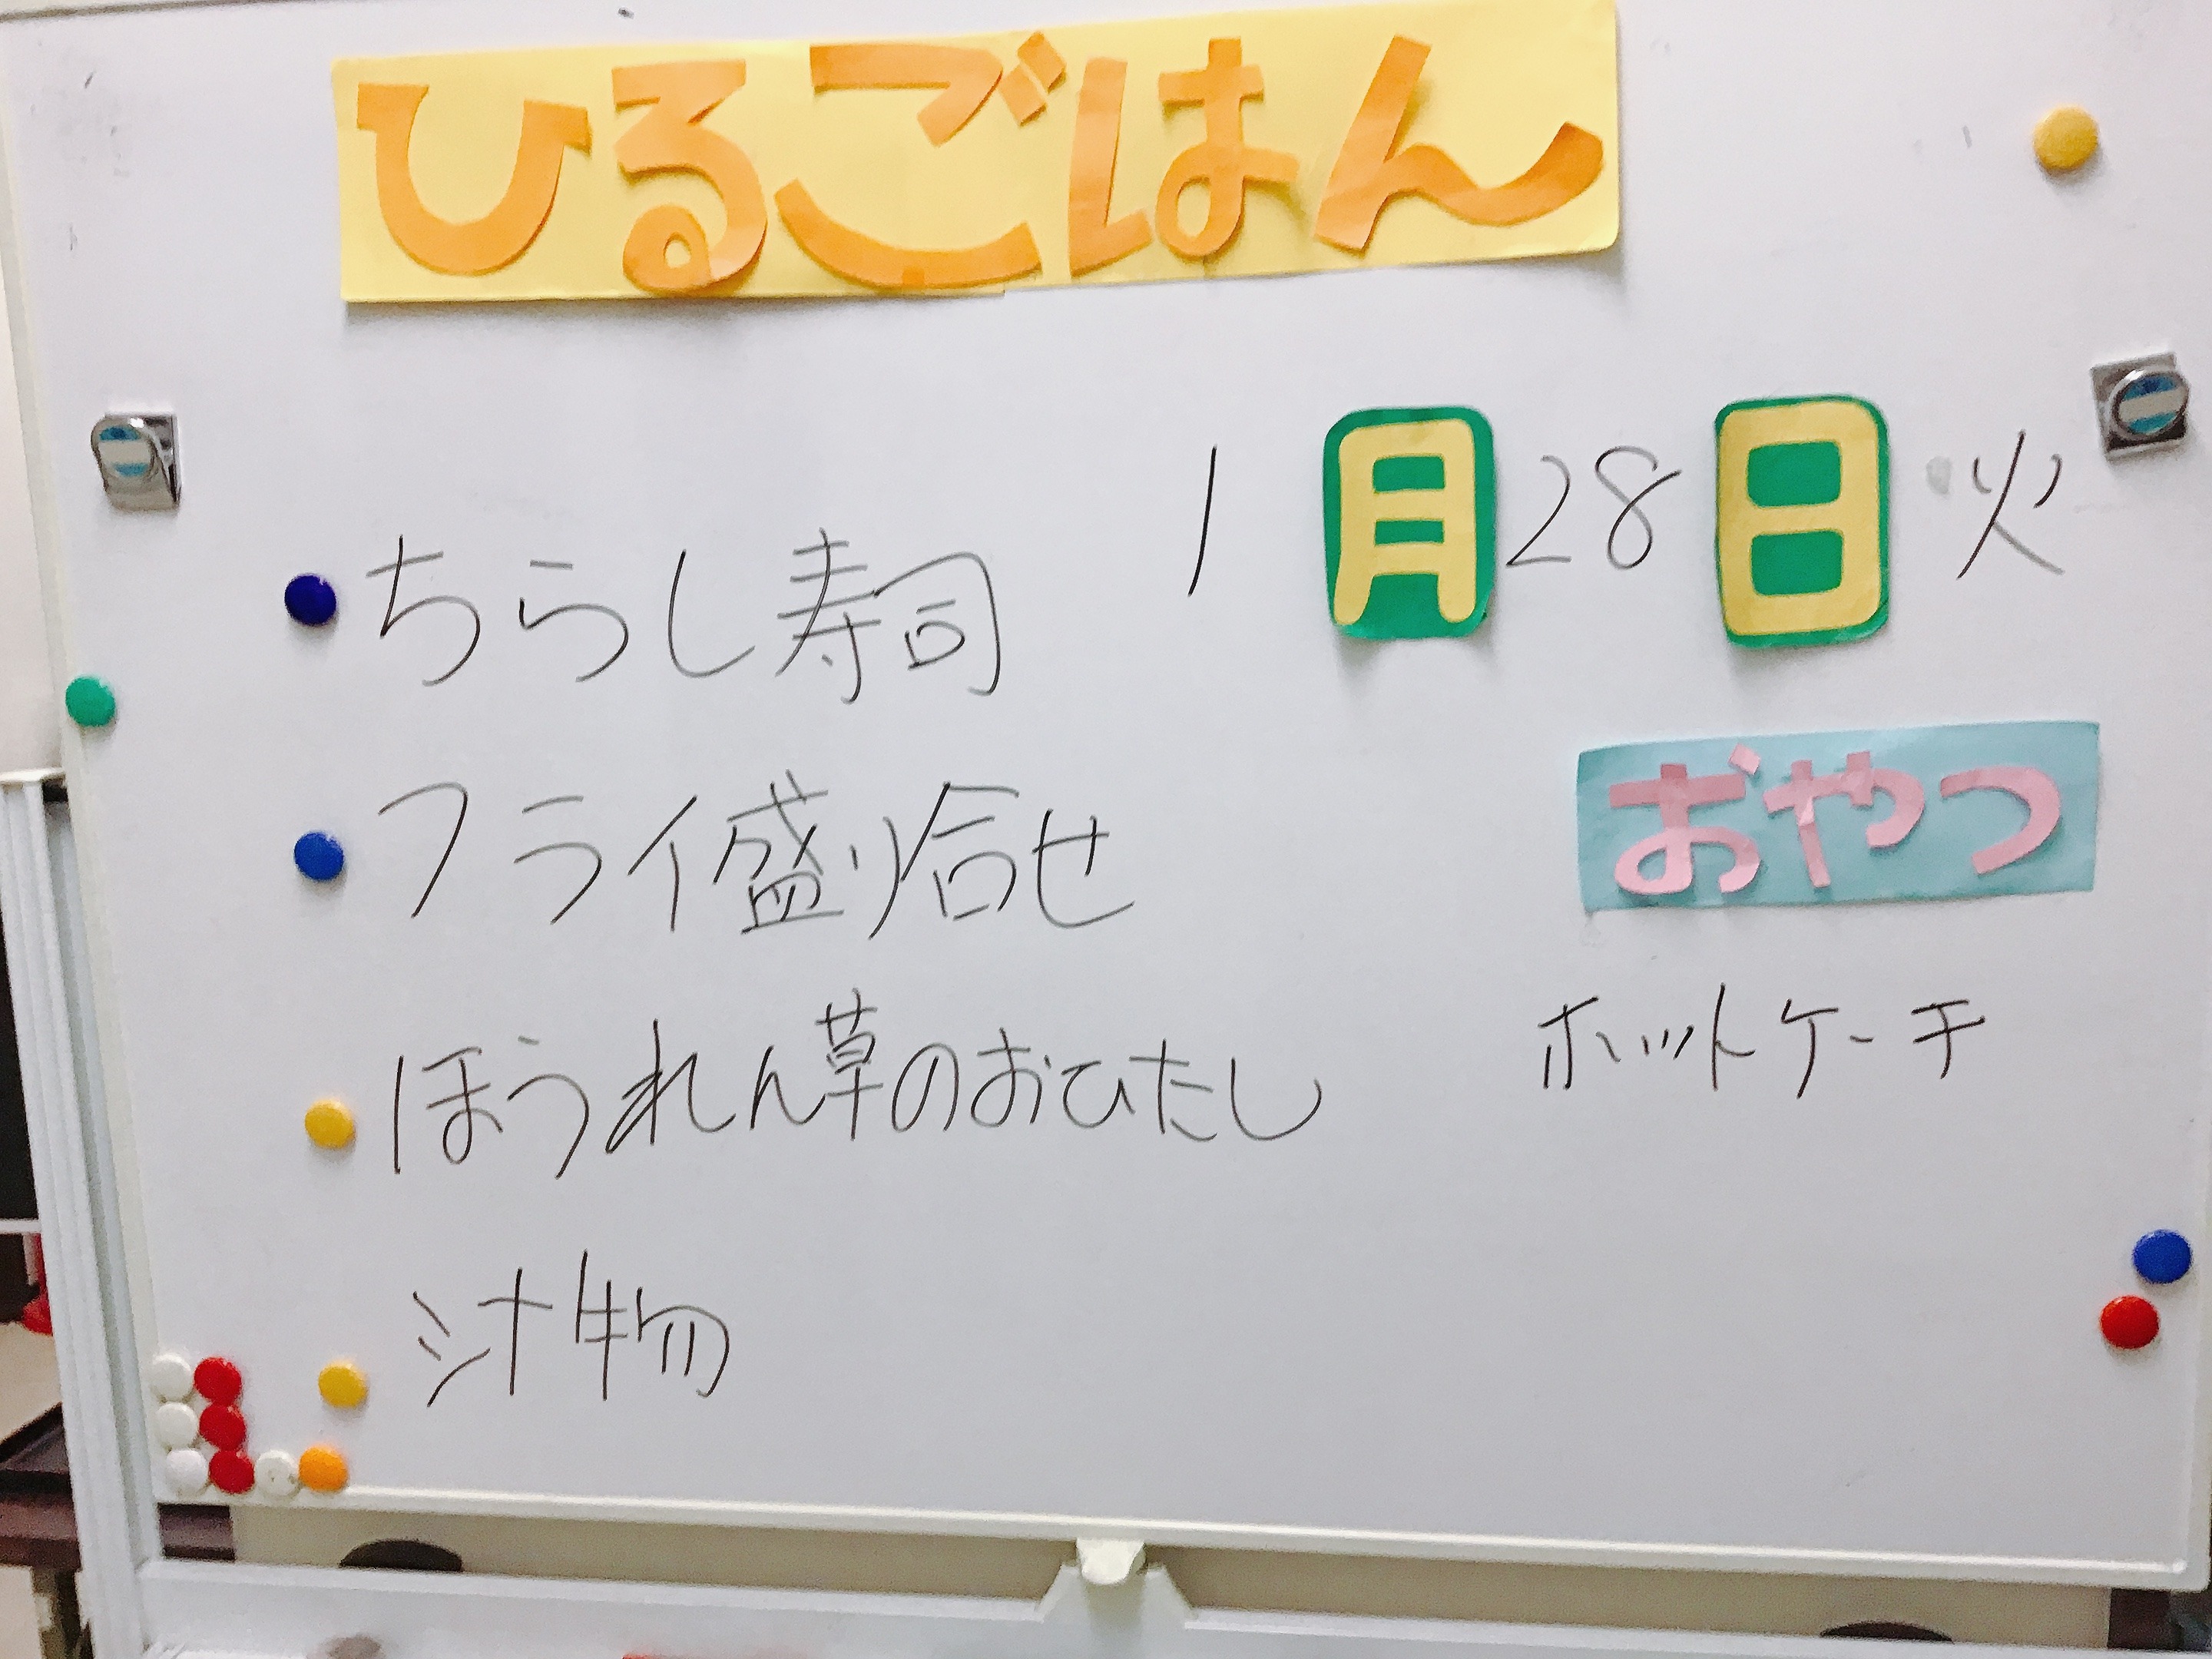 ひるごはん
1月28日 火
ちらし寿司
フライ盛り合せ
おやつ
ほうれん草のおひたし
ホットケーチ
汁物